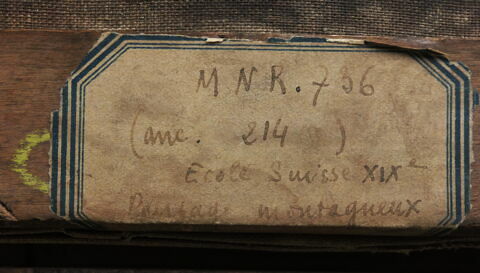 MNR. 736
(anc. 214 )
Ecole Suisse XIXe
Paysage montagneux